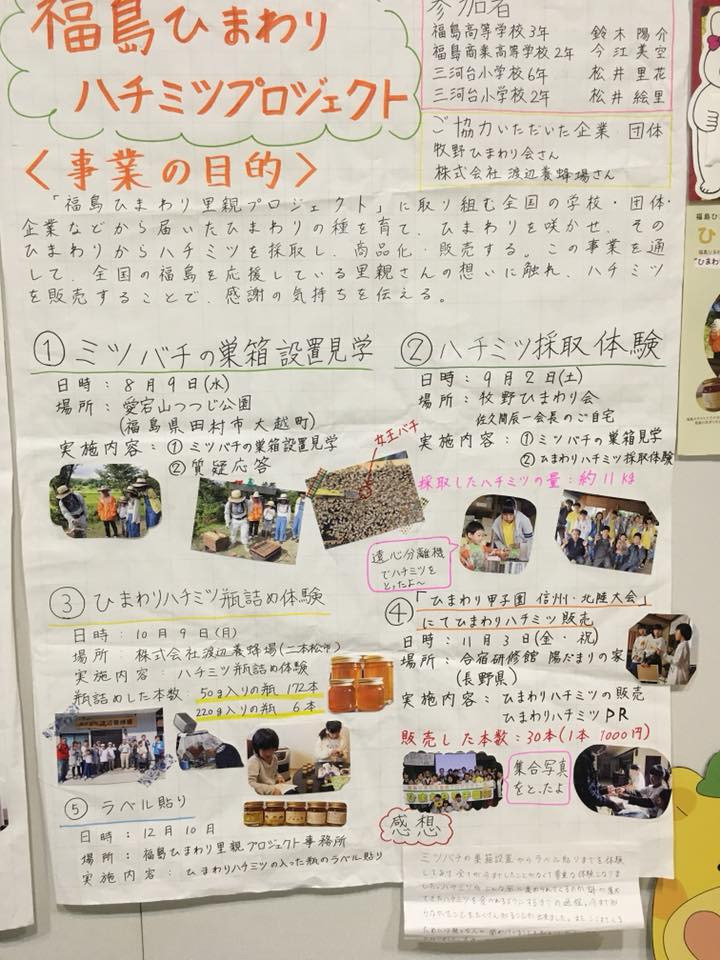 福島ひまわり
ハチミツプロジェクト
参加者
福島高等学校3年 鈴木陽介
福島商業高等学校2年 今江美空
三河台小学校6年 松井里花
三河台小学校2年 松井絵里
ご協力いただいた企業 団体
牧野ひまわり会さん
株式会社渡辺養蜂場さん
<事業の目的>
「福島ひまわり里親プロジェクト」に取り組む全国の学校・団体・
企業などから届いたひまわりの種を育て、ひまわりを咲かせ、その
ひまわりからハチミツを採取し、商品化・販売する。この事業を通
して、全国の福島を応援している里親さんの想いに触れ、ハチミツ
を販売することで、感謝の気持ちを伝える。
① ミツバチの巣箱設置見学
日時：8月9日(水)
場所：愛宕山つつじ公園
(福島県田村市大越町)
実施内容：①ミツバチの巣箱設置見学
②質疑応答
女王バチ
② ハチミツ採取体験
日時：9月2日(土)
場所：牧野ひまわり会
佐久間辰一会長のご自宅
実施内容：①ミツバチの巣箱見学
②ひまわりハチミツ採取体験
採取したハチミツの量：約11kg
遠心分離機
でハチミツを
とったよ〜
③ ひまわりハチミツ瓶詰め体験
日時：10月9日(月)
場所：株式会社渡辺養蜂場(二本松市)
実施内容：ハチミツ瓶詰め体験
瓶詰めした本数：50g入りの瓶 172本
220g入りの瓶 6本
④ 「ひまわり甲子園 信州・北陸大会」
にてひまわりハチミツ販売
日時：11月3日(金・祝)
場所：合宿研修館 陽だまりの家
(長野県)
実施内容：ひまわりハチミツの販売
ひまわりハチミツPR
販売した本数：30本(1本 1000円)
集合写真
をとったよ
⑤ ラベル貼り
日時：12月10日
場所：福島ひまわり里親プロジェクト事務所
実施内容：ひまわりハチミツの入った瓶のラベル貼り
感想
ミツバチの巣箱設置からラベル貼りまでを体験